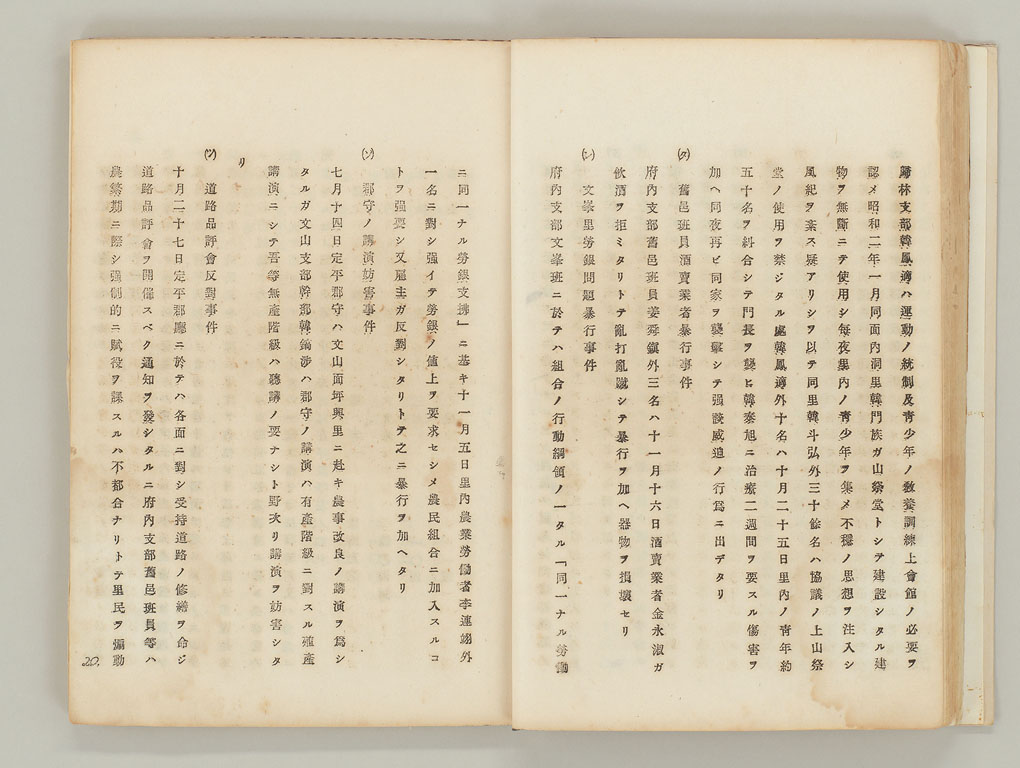 歸林支部韓鳳適ハ運動ノ統制及青少年ノ敎養訓練上會館ノ必要ヲ
認メ昭和二年一月同面內洞里韓門族ガ山祭堂トシテ建設シタル建
物ヲ無斷ニテ使用シ每夜里內ノ靑少年ヲ集メ不穩ノ思想ヲ注入シ
風紀ヲ紊ス疑アリシヲ以テ同里韓斗弘外三十餘名ハ協議ノ上山祭
堂ノ使用ヲ禁ジタル處韓鳳適外十名ハ十月二十五日里內ノ靑年約
五十名ヲ糾合シテ門長ヲ襲ヒ韓泰旭ニ治療二週間ヲ要スル傷害ヲ
加ヘ同夜再ビ同家ヲ襲擊シテ强談威迫ノ行爲ニ出デタリ
(タ) 舊邑班員酒賣業者暴行事件
府內支部舊邑班員姜舜鎭外三名ハ十一月十六日酒賣業者金永淑ガ
飮酒ヲ拒ミタリトテ亂打亂蹴シテ暴行ヲ加ヘ器物ヲ損壞セリ
(レ) 文峯里勞銀問題暴行事件
府內支部文峯班ニ於テハ組合ノ行動綱領ノ一タル「同一ナル勞働
ニ同一ナル勞銀支拂」ニ基キ十一月五日里內農業勞働者李連翊外
一名ニ對シ强イテ勞銀ノ値上ヲ要求セシメ農民組合ニ加入スルコ
トヲ强要シ又雇主ガ反對シタリトテ之ニ暴行ヲ加ヘタリ
(ソ) 郡守ノ講演訪害事件
七月十四日定平郡守ハ文山面坪興里ニ赴キ農事改良ノ講演ヲ爲シ
タルガ文山支部幹部韓鎬涉ハ郡守ノ講演ハ有產階級ニ對スル殖產
講演ニシテ吾等無產階級ハ聽講ノ要ナシト野次リ講演ヲ訪害シタ
リ
(ツ) 道路品評會反對事件
十月二十七日定平郡廳ニ於テハ各面ニ對シ受持道路ノ修繕ヲ命ジ
道路品評會ヲ開催スベク通知ヲ發シタルニ府內支部舊邑班員等ハ
農繁期ニ際シ强制的ニ賦役ヲ課スルハ不都合ナリトテ里民ヲ煽動
20.